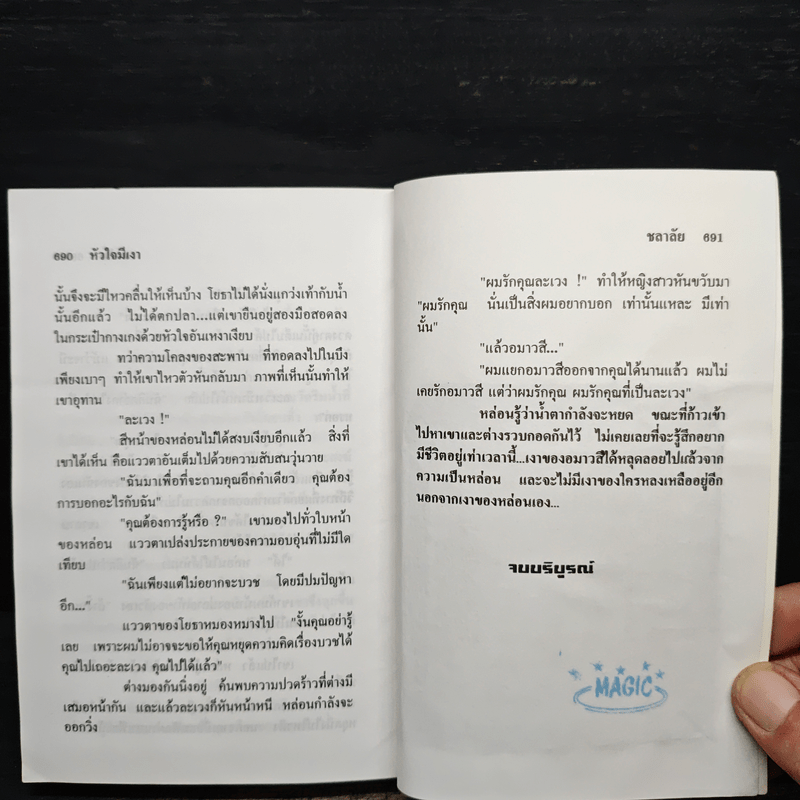 690 หัวใจมีเงา
นั้นจึงจะมีไหวคลื่นให้เห็นบ้าง โยธาไม่ได้นั่งแกว่งเท้ากับน้ำ
นั้นอีกแล้ว ไม่ได้ตกปลา...แต่เขายืนอยู่สองมือสอดลง
ในกระเป๋ากางเกงด้วยหัวใจอันเหงาเงียบ
ทว่าความโคลงของสะพาน ที่ทอดลงไปในบึง
เพียงเบาๆ ทำให้เขาไหวตัวหันกลับมา ภาพที่เห็นนั้นทำให้
เขาอุทาน
"ละเวง !"
สีหน้าของหล่อนไม่ได้สงบเงียบอีกแล้ว สิ่งที่
เขาได้เห็น คือแววตาอันเต็มไปด้วยความสับสนวุ่นวาย
"ฉันมาเพื่อที่จะถามคุณอีกคำเดียว คุณต้อง
การบอกอะไรกับฉัน"
"คุณต้องการรู้หรือ ?" เขามองไปทั่วใบหน้า
ของหล่อน แววตาเปล่งประกายของความอบอุ่นที่ไม่มีใด
เทียบ
"ฉันเพียงแต่ไม่อยากจะบวช โดยมีปมปัญหา
อีก..."
แววตาของโยธาหมองหมางไป "งั้นคุณอย่ารู้
เลย เพราะผมไม่อาจจะขอให้คุณหยุดความคิดเรื่องบวชได้
คุณไปเถอะละเวง คุณไปได้แล้ว"
ต่างมองกันนิ่งอยู่ ค้นพบความปวดร้าวที่ต่างมี
เสมอหน้ากัน และแล้วละเวงก็หันหน้าหนี หล่อนกำลังจะ
ออกวิ่ง
ชลาลัย 691
"ผมรักคุณละเวง !" ทำให้หญิงสาวหันขวับมา
"ผมรักคุณ นั่นเป็นสิ่งผมอยากบอก เท่านั้นแหละ มีเท่า
นั้น"
"แล้วอมาวสี..."
"ผมแยกอมาวสีออกจากคุณได้นานแล้ว ผมไม่
เคยรักอมาวสี แต่ว่าผมรักคุณ ผมรักคุณที่เป็นละเวง"
หล่อนรู้ว่าน้ำตากำลังจะหยด ขณะที่ก้าวเข้า
ไปหาเขาและต่างรวบกอดกันไว้ ไม่เคยเลยที่จะรู้สึกอยาก
มีชีวิตอยู่เท่าเวลานี้...เงาของอมาวสีได้หลุดลอยไปแล้วจาก
ความเป็นหล่อน และจะไม่มีเงาของใครหลงเหลืออยู่อีก
นอกจากเงาของหล่อนเอง...
จบบริบูรณ์
MAGIC